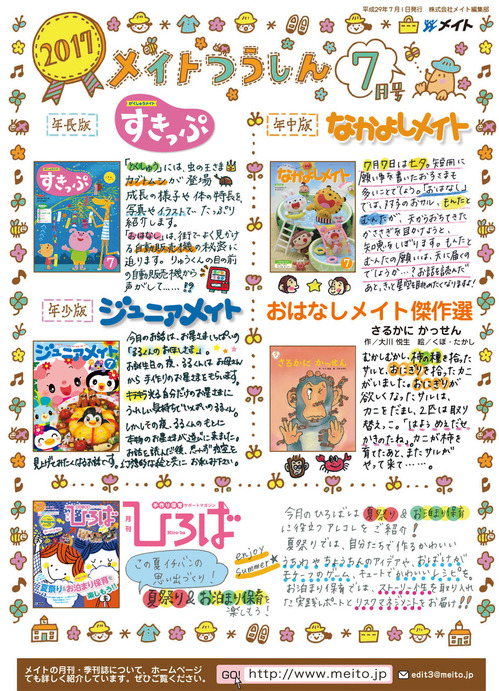 平成29年7月1日発行 株式会社メイト編集部
メイト
2017
メイトつうしん
7月号
年長版
がくしゅうメイト
すきっぷ
すきっぷ
7
「がくしゅう」には、虫の王さま
カブトムシが登場
成長の様子や体の特長を、
写真やイラストでたっぷり
紹介します。
「おはなし」は、街でよく見かけ
る自動販売機の秘密に
迫ります。りゅうくんの目の前
の自動販売機から
声がして……!?
年中版
なかよしメイト
なかよしメイト
7
7月7日は七夕。短冊に
願い事を書いたお子さまも
多いことでしょう。「おはなし」
では、双子のおサル、もんたと
むんたが、天からおちてきた
かささぎを助けようと、
知恵をしぼります。もんたと
むんたの願いは、天に届くの
でしょうか…?お話を読んだ
あと、きっと星空を眺めたくなりますよ!
年少版
ジュニアメイト
ジュニアメイト
7
今月のお話は、お星さまいっぱいの
「るるんのおほしさま」。
お誕生日の夜、るるんは、お母さん
から手作りのお星さまをもらいます。
キラキラ光る自分だけのお星さまに
うれしい気持ちでいっぱいのるるん。
しかしその夜、るるんのもとに
本物のお星さまが遊びに来ました。
お話を読んだ後、思わず夜空を
見上げてみたくなるお話です。
幻想的な絵と共に、お楽しみ下さい。
おはなしメイト傑作選
さるかに かっせん
作/大川 悦生 絵/くぼ・たかし
さるかに かっせん
7
むかしむかし、柿の種を拾った
サルと、おにぎりを拾ったカニ
がいました。おにぎりが
欲しくなった、サルは、
カニをだまし、2匹は取り
替えっこ。「はよう めえだせ
かきのたね。」カニが柿を
育てたあと、またサルが
やって来て……。
保育者応援サポートマガジン
月刊
ひろば
Hiro-ba
ひろば
夏祭り&お泊まり保育を
楽しもう!!
この夏イチバンの
思い出づくり!
夏祭り&お泊まり保育を
楽しもう!
enjoy
Summer
今月のひろばは夏祭り&お泊まり保育
に役立つアレコレをご紹介!
夏祭りでは、自分たちで作るかわいい
うちわやちょうちんのアイデアや、おばけが
キュートでかわいいレシピを。
お泊まり保育では、ストーリー性を取り入れ
た実践レポートとリスクマネジメントをお届け!!
メイトの月刊・季刊誌について、ホームページ
でも詳しく紹介しています。ぜひご覧ください。
GO!
http://www.meito.jp
edit3@meito.jp